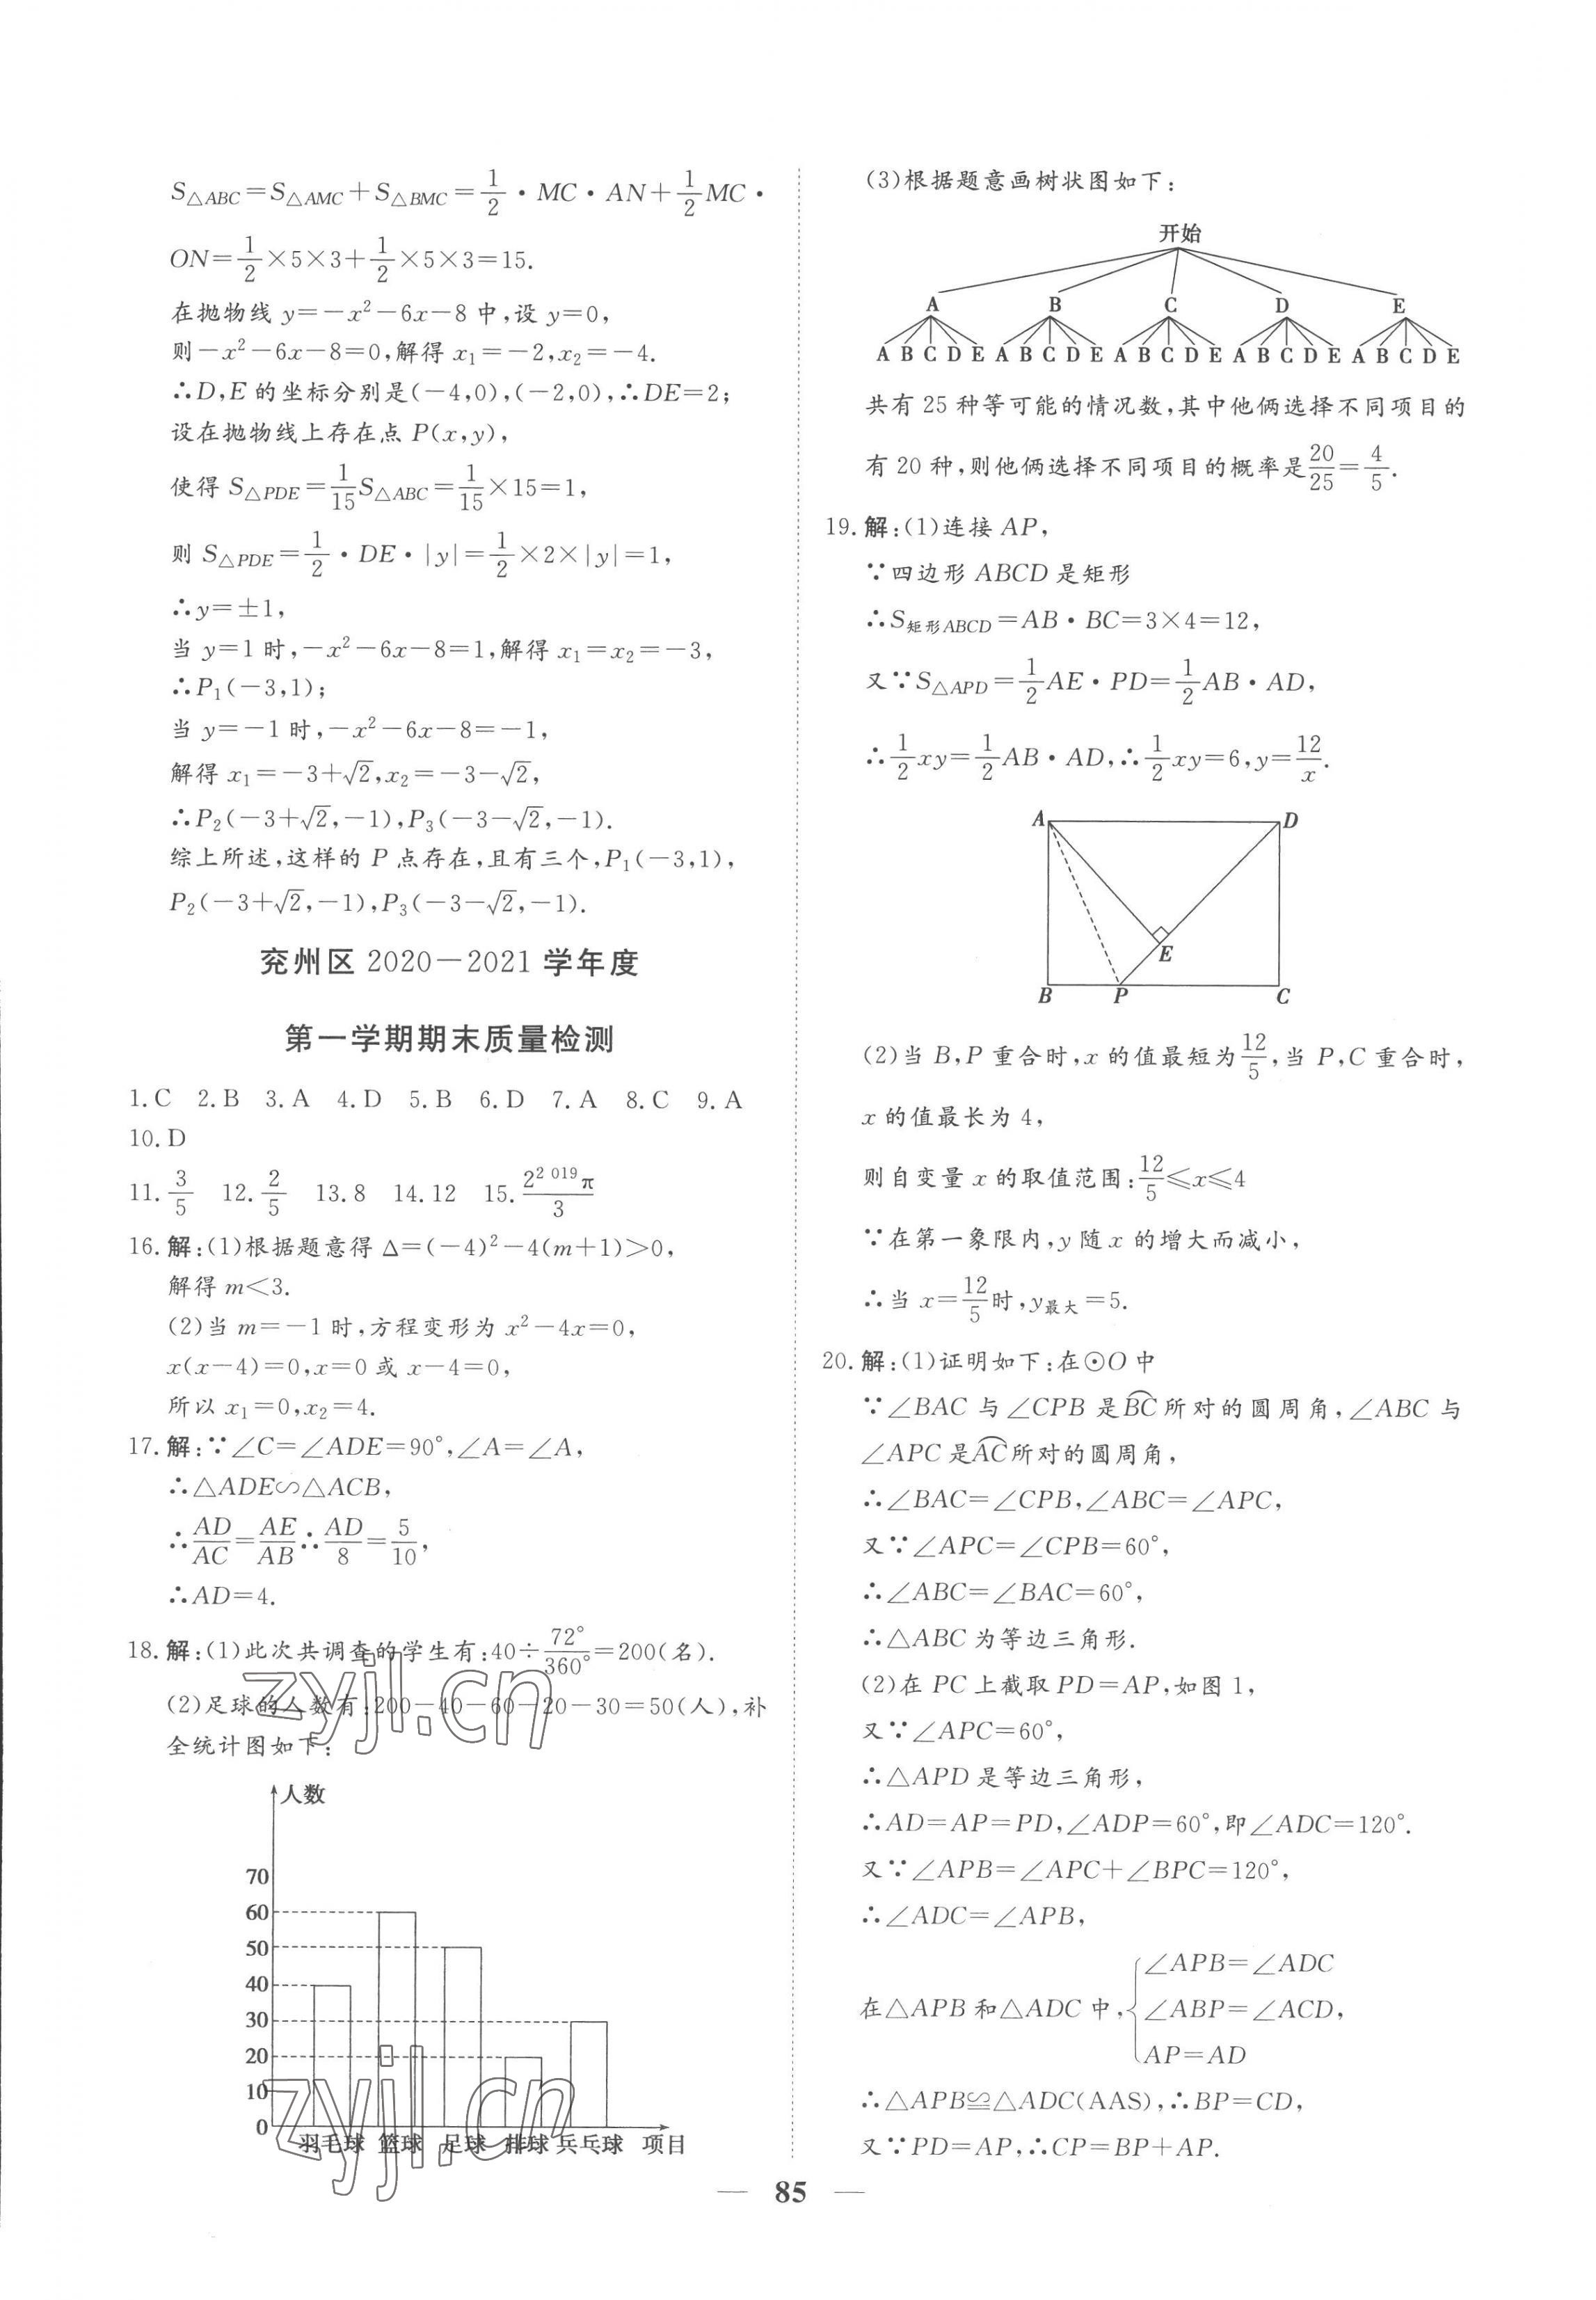 S△ABC=S△AMC+S△BMC=1/2·MC·AN+1/2MC·
ON=1/2×5×3+1/2×5×3=15.
在抛物线 y=-x²-6x-8 中,设 y=0,
则-x²-6x-8=0,解得 x₁=-2,x₂=-4.
∴D,E 的坐标分别是(-4,0),(-2,0),∴DE=2;
设在抛物线上存在点 P(x,y),
使得 S△PDE=1/15S△ABC=1/15×15=1,
则 S△PDE=1/2·DE·|y|=1/2×2×|y|=1,
∴y=±1,
当 y=1 时,-x²-6x-8=1,解得 x₁=x₂=-3,
∴P₁(-3,1);
当 y=-1 时,-x²-6x-8=-1,
解得 x₁=-3+√2,x₂=-3-√2,
∴P₂(-3+√2,-1),P₃(-3-√2,-1).
综上所述,这样的 P 点存在,且有三个,P₁(-3,1),
P₂(-3+√2,-1),P₃(-3-√2,-1).
兖州区 2020-2021 学年度
第一学期期末质量检测
1.C 2.B 3.A 4.D 5.B 6.D 7.A 8.C 9.A
10.D
11.3/5 12.2/5 13.8 14.12 15.2^(2 019)π/3
16.解:(1)根据题意得 Δ=(-4)²-4(m+1)>0,
解得 m<3.
(2)当 m=-1 时,方程变形为 x²-4x=0,
x(x-4)=0,x=0 或 x-4=0,
所以 x₁=0,x₂=4.
17.解:∵∠C=∠ADE=90°,∠A=∠A,
∴△ADE∽△ACB,
∴AD/AC=AE/AB∴AD/8=5/10,
∴AD=4.
18.解:(1)此次共调查的学生有:40÷72°/360°=200(名).
(2)足球的人数有:200-40-60-20-30=50(人),补
全统计图如下:
人数
70
60
50
40
30
20
10
0
羽毛球 篮球 足球 排球 乒乓球 项目
zyjl.cn
zyjl.cn
(3)根据题意画树状图如下:
开始
A B C D E
A B C D E A B C D E A B C D E A B C D E A B C D E
共有 25 种等可能的情况数,其中他俩选择不同项目的
有 20 种,则他俩选择不同项目的概率是20/25=4/5.
19.解:(1)连接 AP,
∵四边形 ABCD 是矩形
∴S矩形ABCD=AB·BC=3×4=12,
又∵S△APD=1/2AE·PD=1/2AB·AD,
∴1/2xy=1/2AB·AD,∴1/2xy=6,y=12/x.
A D
E
B P C
(2)当 B,P 重合时,x 的值最短为12/5,当 P,C 重合时,
x 的值最长为 4,
则自变量 x 的取值范围:12/5≤x≤4
∵在第一象限内,y 随 x 的增大而减小,
∴当 x=12/5时,y最大=5.
20.解:(1)证明如下:在⊙O 中
∵∠BAC 与∠CPB 是⌒BC所对的圆周角,∠ABC 与
∠APC 是⌒AC所对的圆周角,
∴∠BAC=∠CPB,∠ABC=∠APC,
又∵∠APC=∠CPB=60°,
∴∠ABC=∠BAC=60°,
∴△ABC 为等边三角形.
(2)在 PC 上截取 PD=AP,如图 1,
又∵∠APC=60°,
∴△APD 是等边三角形,
∴AD=AP=PD,∠ADP=60°,即∠ADC=120°.
又∵∠APB=∠APC+∠BPC=120°,
∴∠ADC=∠APB,
∠APB=∠ADC
在△APB 和△ADC 中,{∠ABP=∠ACD,
AP=AD
∴△APB≌△ADC(AAS),∴BP=CD,
又∵PD=AP,∴CP=BP+AP.
— 85 —